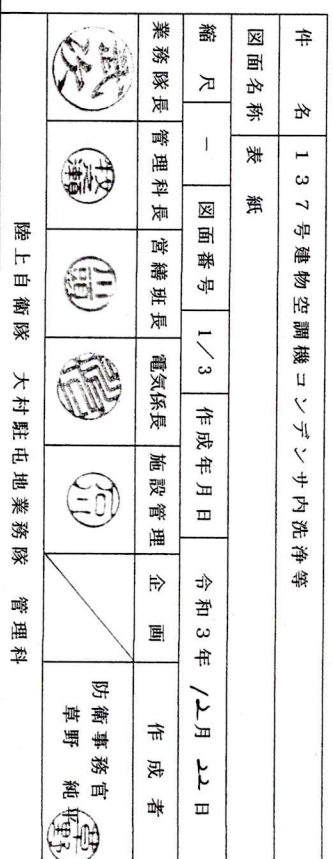 件 名 137号建物空調機コンデンサ内洗浄等
図面名称 表 紙
縮 尺 － 図面番号 1／3 作成年月日 令和3年12月22日
業務隊長 管理科長 営繕班長 電気係長 施設管理 企 画 作 成 者
牧瀬
防衛事務官
草野 純平
草野
陸上自衛隊 大村駐屯地業務隊 管理科